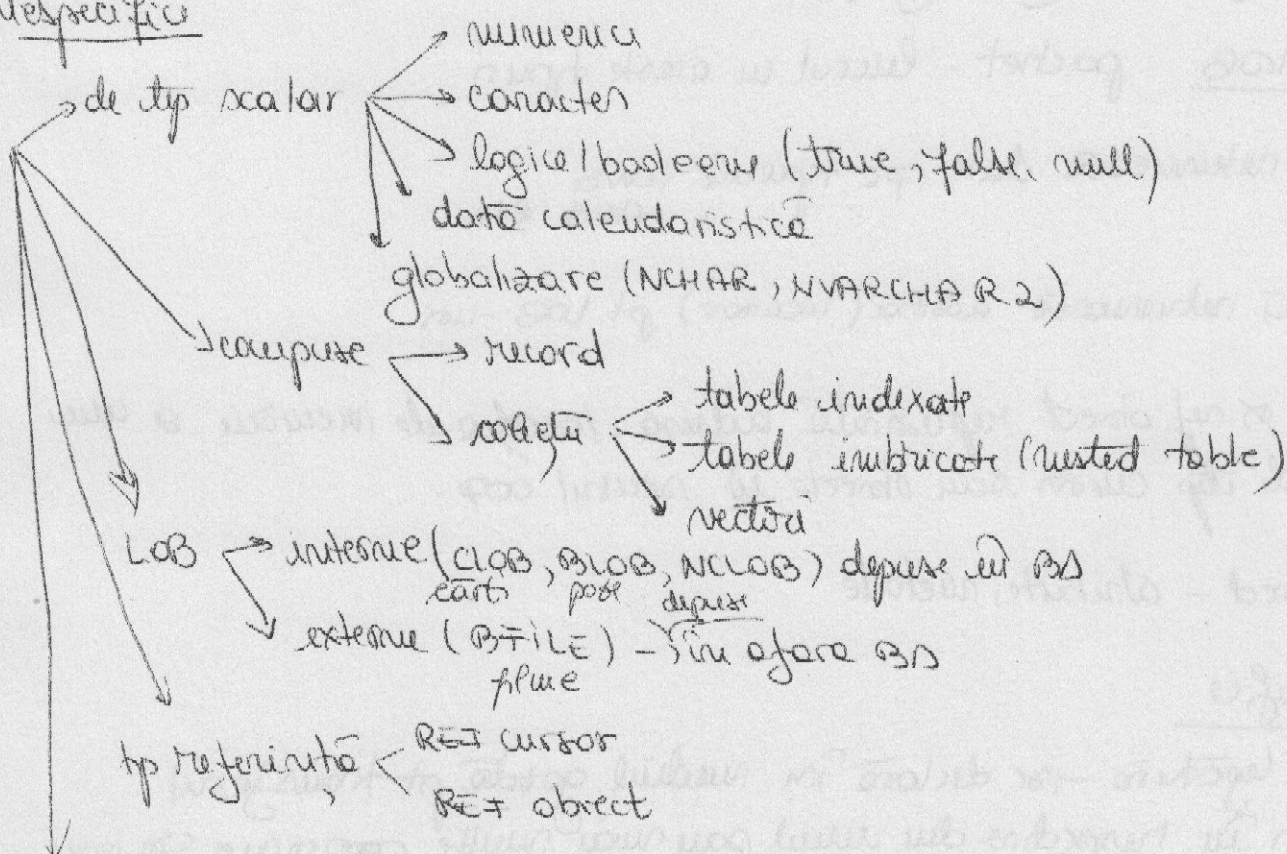 nespecifici
de tip scalar
numerici
caracter
logice/booleene (true, false, null)
dată calendaristică
globalizare (NCHAR, NVARCHAR2)
compuse
record
colecții
tabele indexate
tabele imbricate (nested table)
vectori
LOB
interne (CLOB, BLOB, NCLOB) depuse în BD
cărți poze depuse
externe (BFILE) - în afara BD
filme
tip referință
REF cursor
REF obiect